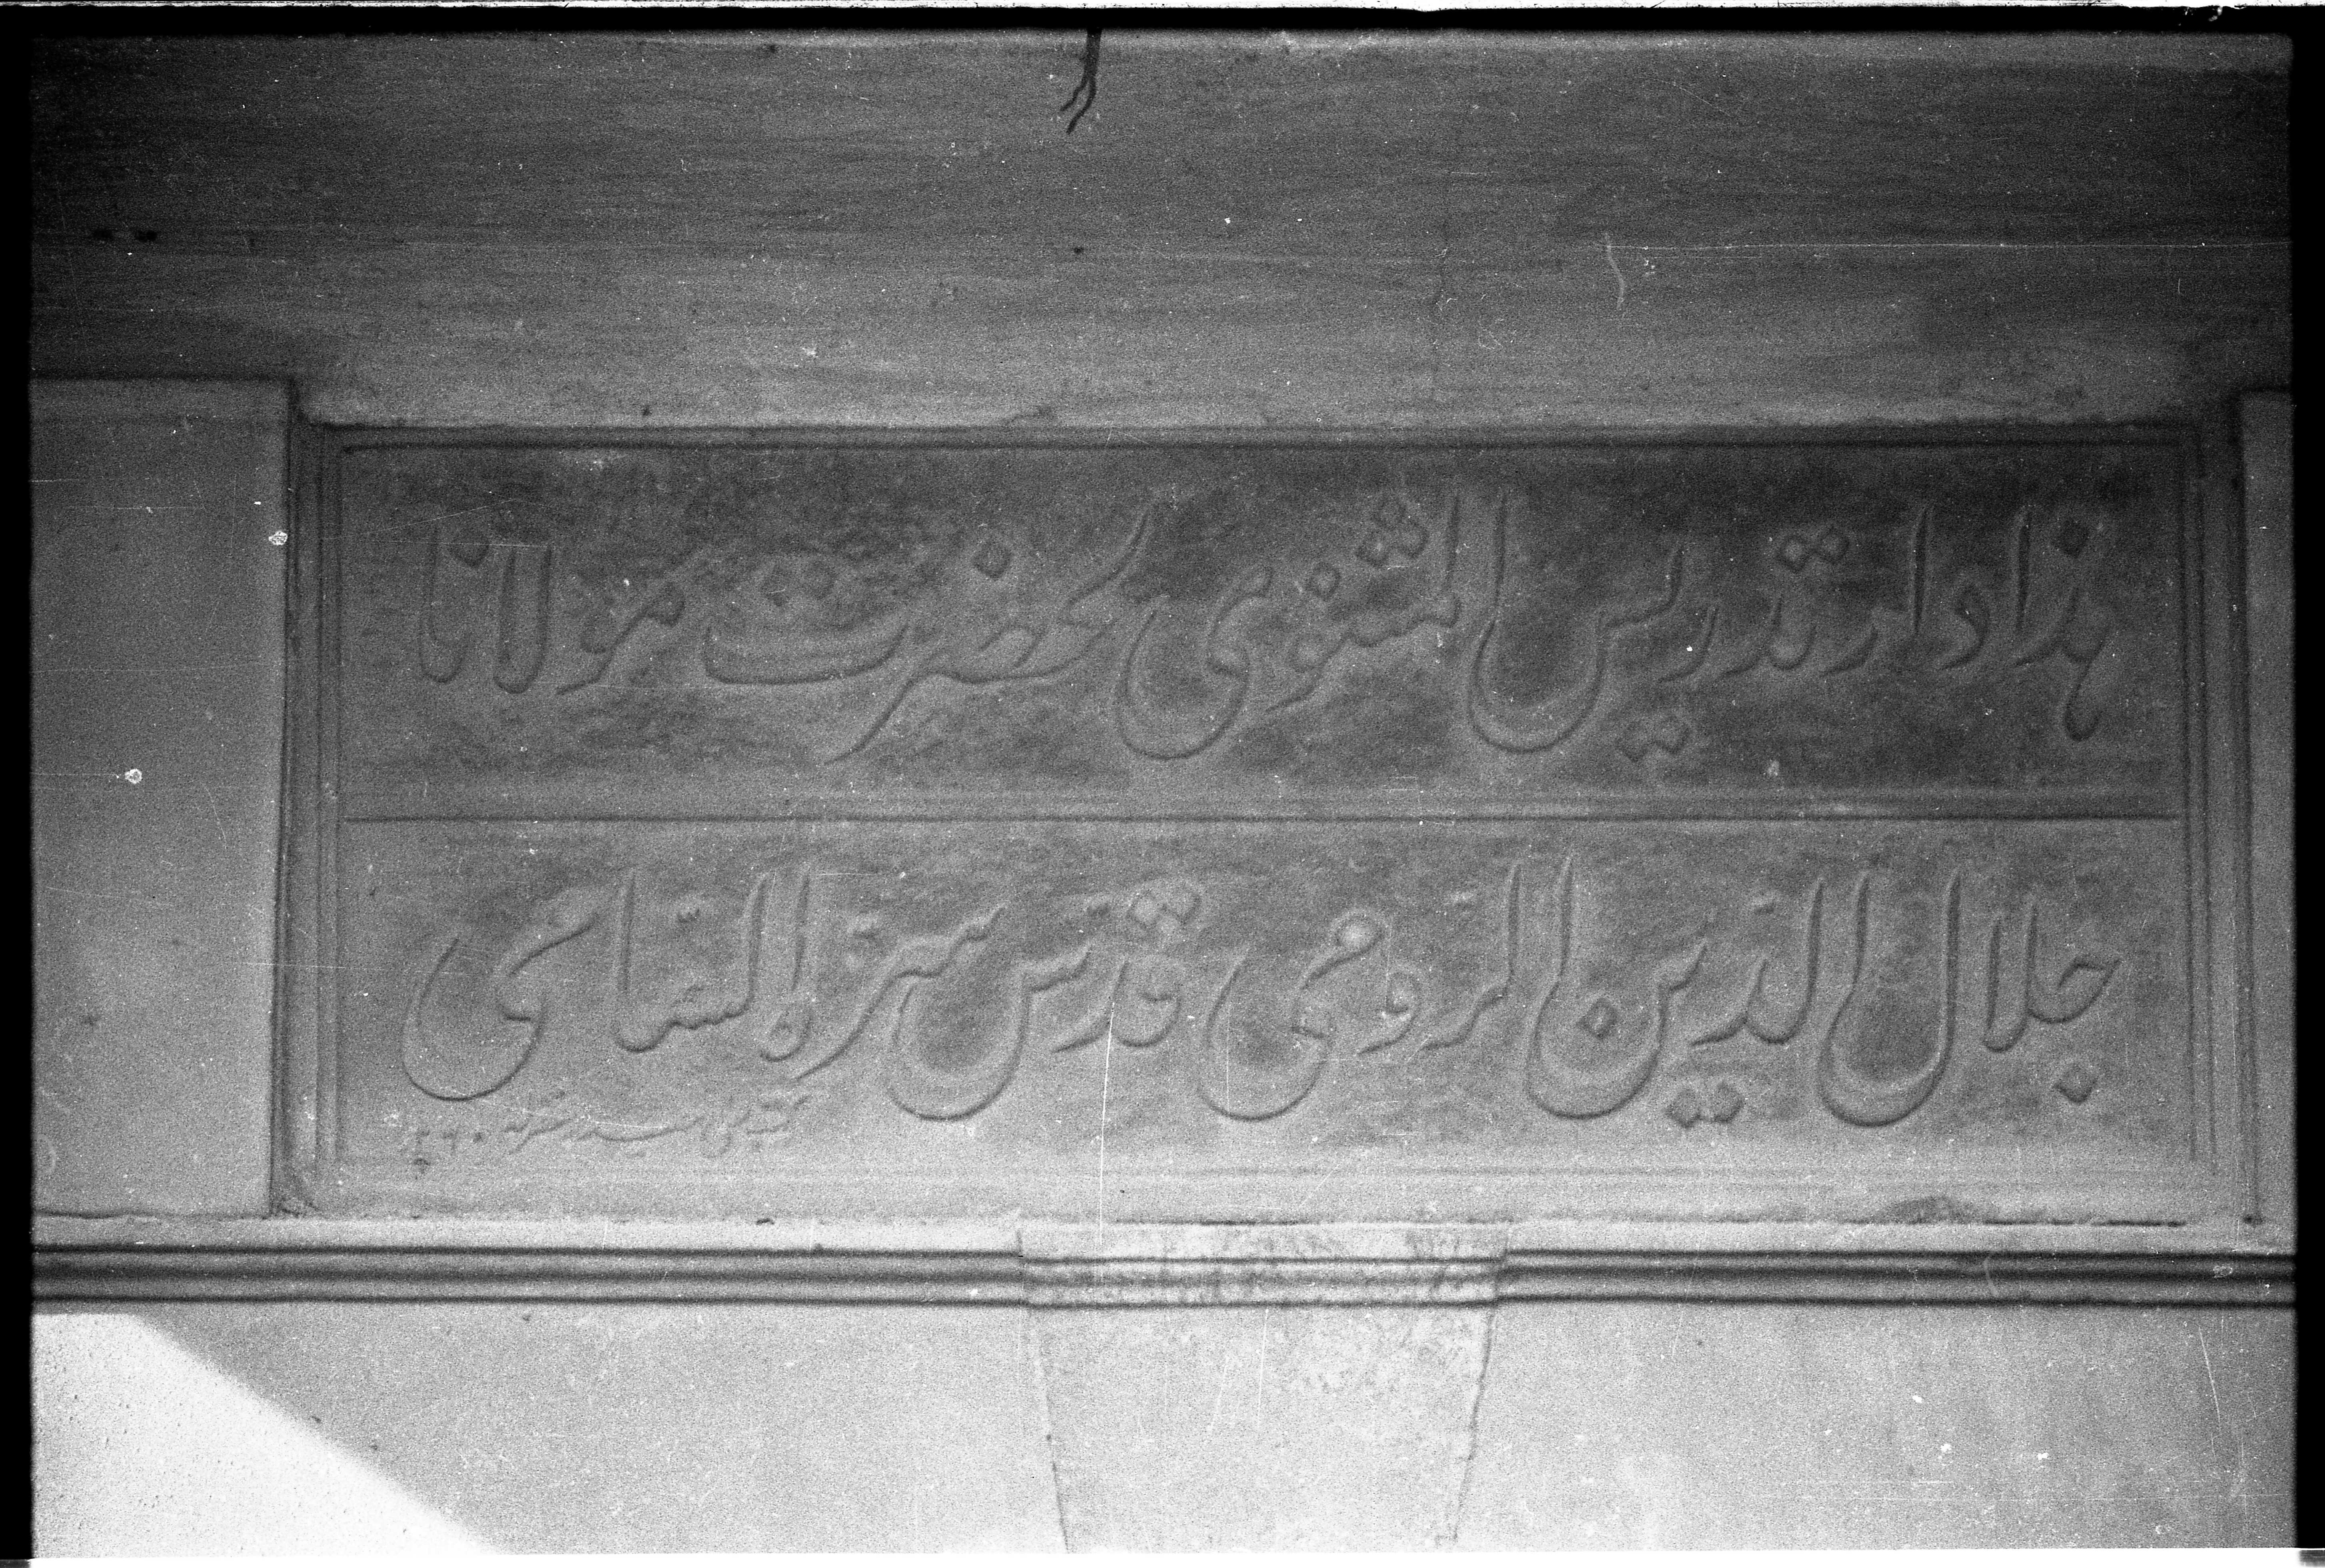 هذا دار تدريس المثنوى لحضرت مولانا
جلال الدّين الرّومى قدّس سرّه السّامى
١٢٦٠